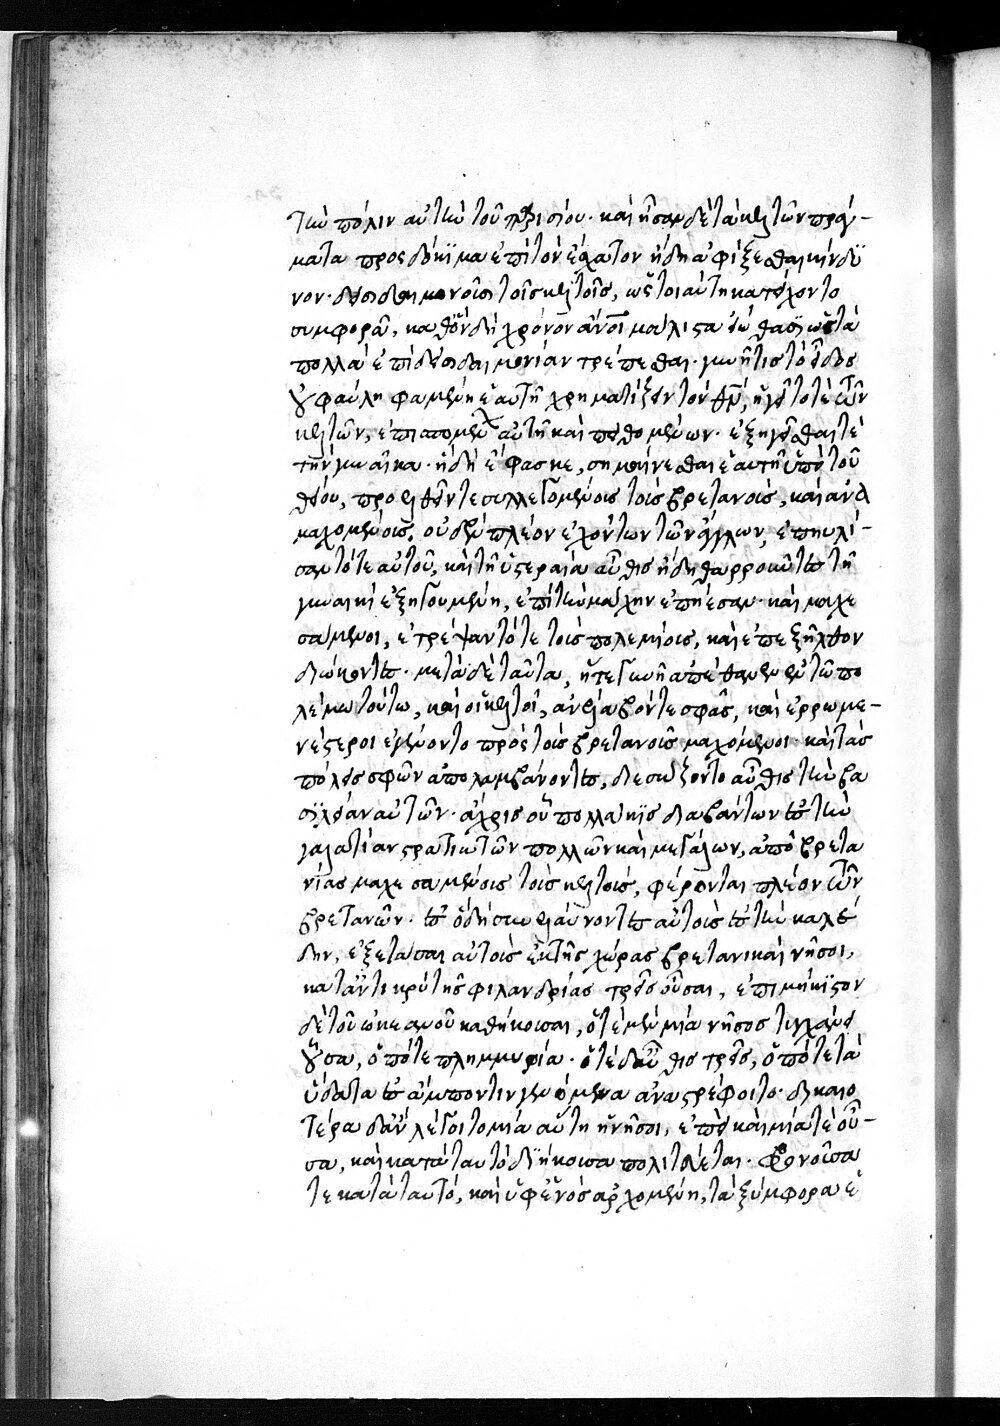 τὴν πόλιν αὐτὴν τοῦ παρισίου· καὶ ἦσαν δὲ τὰ κελτῶν πράγ-
ματα προσδόκιμα ἐπὶ τὸν ἔσχατον ἤδη ἀφίξεσθαι κίνδυ
νον· δεισιδαιμονοῦσι τοῖς κελτοῖς, ὥς τοιαύτη κατέχοντο
συμφορᾷ, καθ' ὃν δὴ χρόνον ἄνοι μάλιστα εἰώθασιν ὡς τὰ
πολλὰ ἐπὶ δεισιδαιμονίαν τρέπεσθαι· γυνή τις τὸ εἶδος
οὐ φαύλη φαμένη ἑαυτῇ χρηματίζειν τὸν θν, ἡγεῖτό τε τῶν
κελτῶν, ἐπισπομένων αὐτῇ καὶ πειθομένων· ἐξηγεῖσθαί τε
τὴν γυναῖκα· ᾗ δὴ ἔφασκε, σημαίνεσθαι ἑαυτῇ ὑπὸ τοῦ
θείου, προελθεῖν τε συλλεγομένοις τοῖς βρετανοῖς, καὶ ἀνα
μαχομένοις. οὐδὲν πλέον ἐχόντων τῶν ἄγγλων, ἐπηυλί-
σαντό τε αὐτοῦ, καὶ τῇ ὑστεραίᾳ αὖθις ἤδη θαρροῦντες τῇ
γυναικὶ ἐξηγουμένῃ, ἐπὶ τὴν μάχην ἐπῄεσαν· καὶ μαχε
σάμενοι, ἐτρέψαντό τε τοῖς πολεμίοις, καὶ ἐπεξῆλθον
διώκοντες· μετὰ δὲ ταῦτα, ἥ τε γυνὴ ἀπέθανεν ἐν τῷ πο
λέμῳ τούτῳ, καὶ οἱ κελτοὶ, ἀναλαβόντε σφᾶς, καὶ ἐρρωμε-
νέστεροι ἐγένοντο πρὸς τοῖς βρετανοῖς μαχόμενοι· καὶ τὰς
πόλεις σφῶν ἀπολαμβάνοντες, διεσώζοντο αὖθις τὴν βα
σιλείαν αὐτῶν· ἄχρις οὗ πολλάκις διαβάντων ἐς τὴν
γαλατίαν στρατιωτῶν πολλῶν καὶ μεγάλων, ἀπὸ βρετα
νίας μαχεσαμένοις τοῖς κελτοῖς, φέρονται πλέον τῶν
βρετανῶν· ἐς ὃ δὴ συνελαύνοντες αὐτοῖς ἐς τὴν καλέ
δην, ἐξελάσαι αὐτοῖς ἐκ τῆς χώρας βρετανικαὶ νῆσοι,
καταντικρὺ τῆς φιλανδρίας τρεῖς οὖσαι, ἐπιμήκιστον
δὲ τοῦ ὠκεανοῦ καθήκουσαι, ὁτὲ μὲν μία νῆσος τυγχάνει
οὖσα, ὁπότε πλημμυρία· ὁτὲ δ' αὖθις τρεῖς, ὁπότε τὰ
ὕδατα ἐς ἄμπωτιν γενόμενα ἀναστρέφοιτο· δικαιο
τέρα δ' ἂν λέγοιτο μία αὕτη ἡ νῆσοι, ἐπεὶ καὶ μία τὲ οὖ-
σα, καὶ κατὰ ταυτὸ διήκουσα πολιτεύεται· φρονοῦσα
τε κατὰ ταυτό, καὶ ὑφ' ἑνὸς ἀρχομένη, τὰ ξύμφορα ἑ